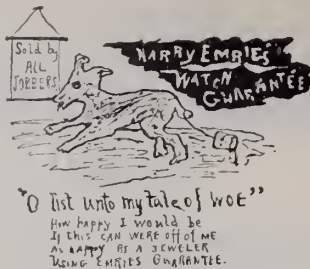 Sold by
ALL
JOBBERS
HARRY EMBIES'
WATCH
GUARANTEE
"O list unto my tale of WOE"
How happy I would be
If this CAN WERE off of ME
As happy As A JEWELER
USING EMRIES GUARANTEE.